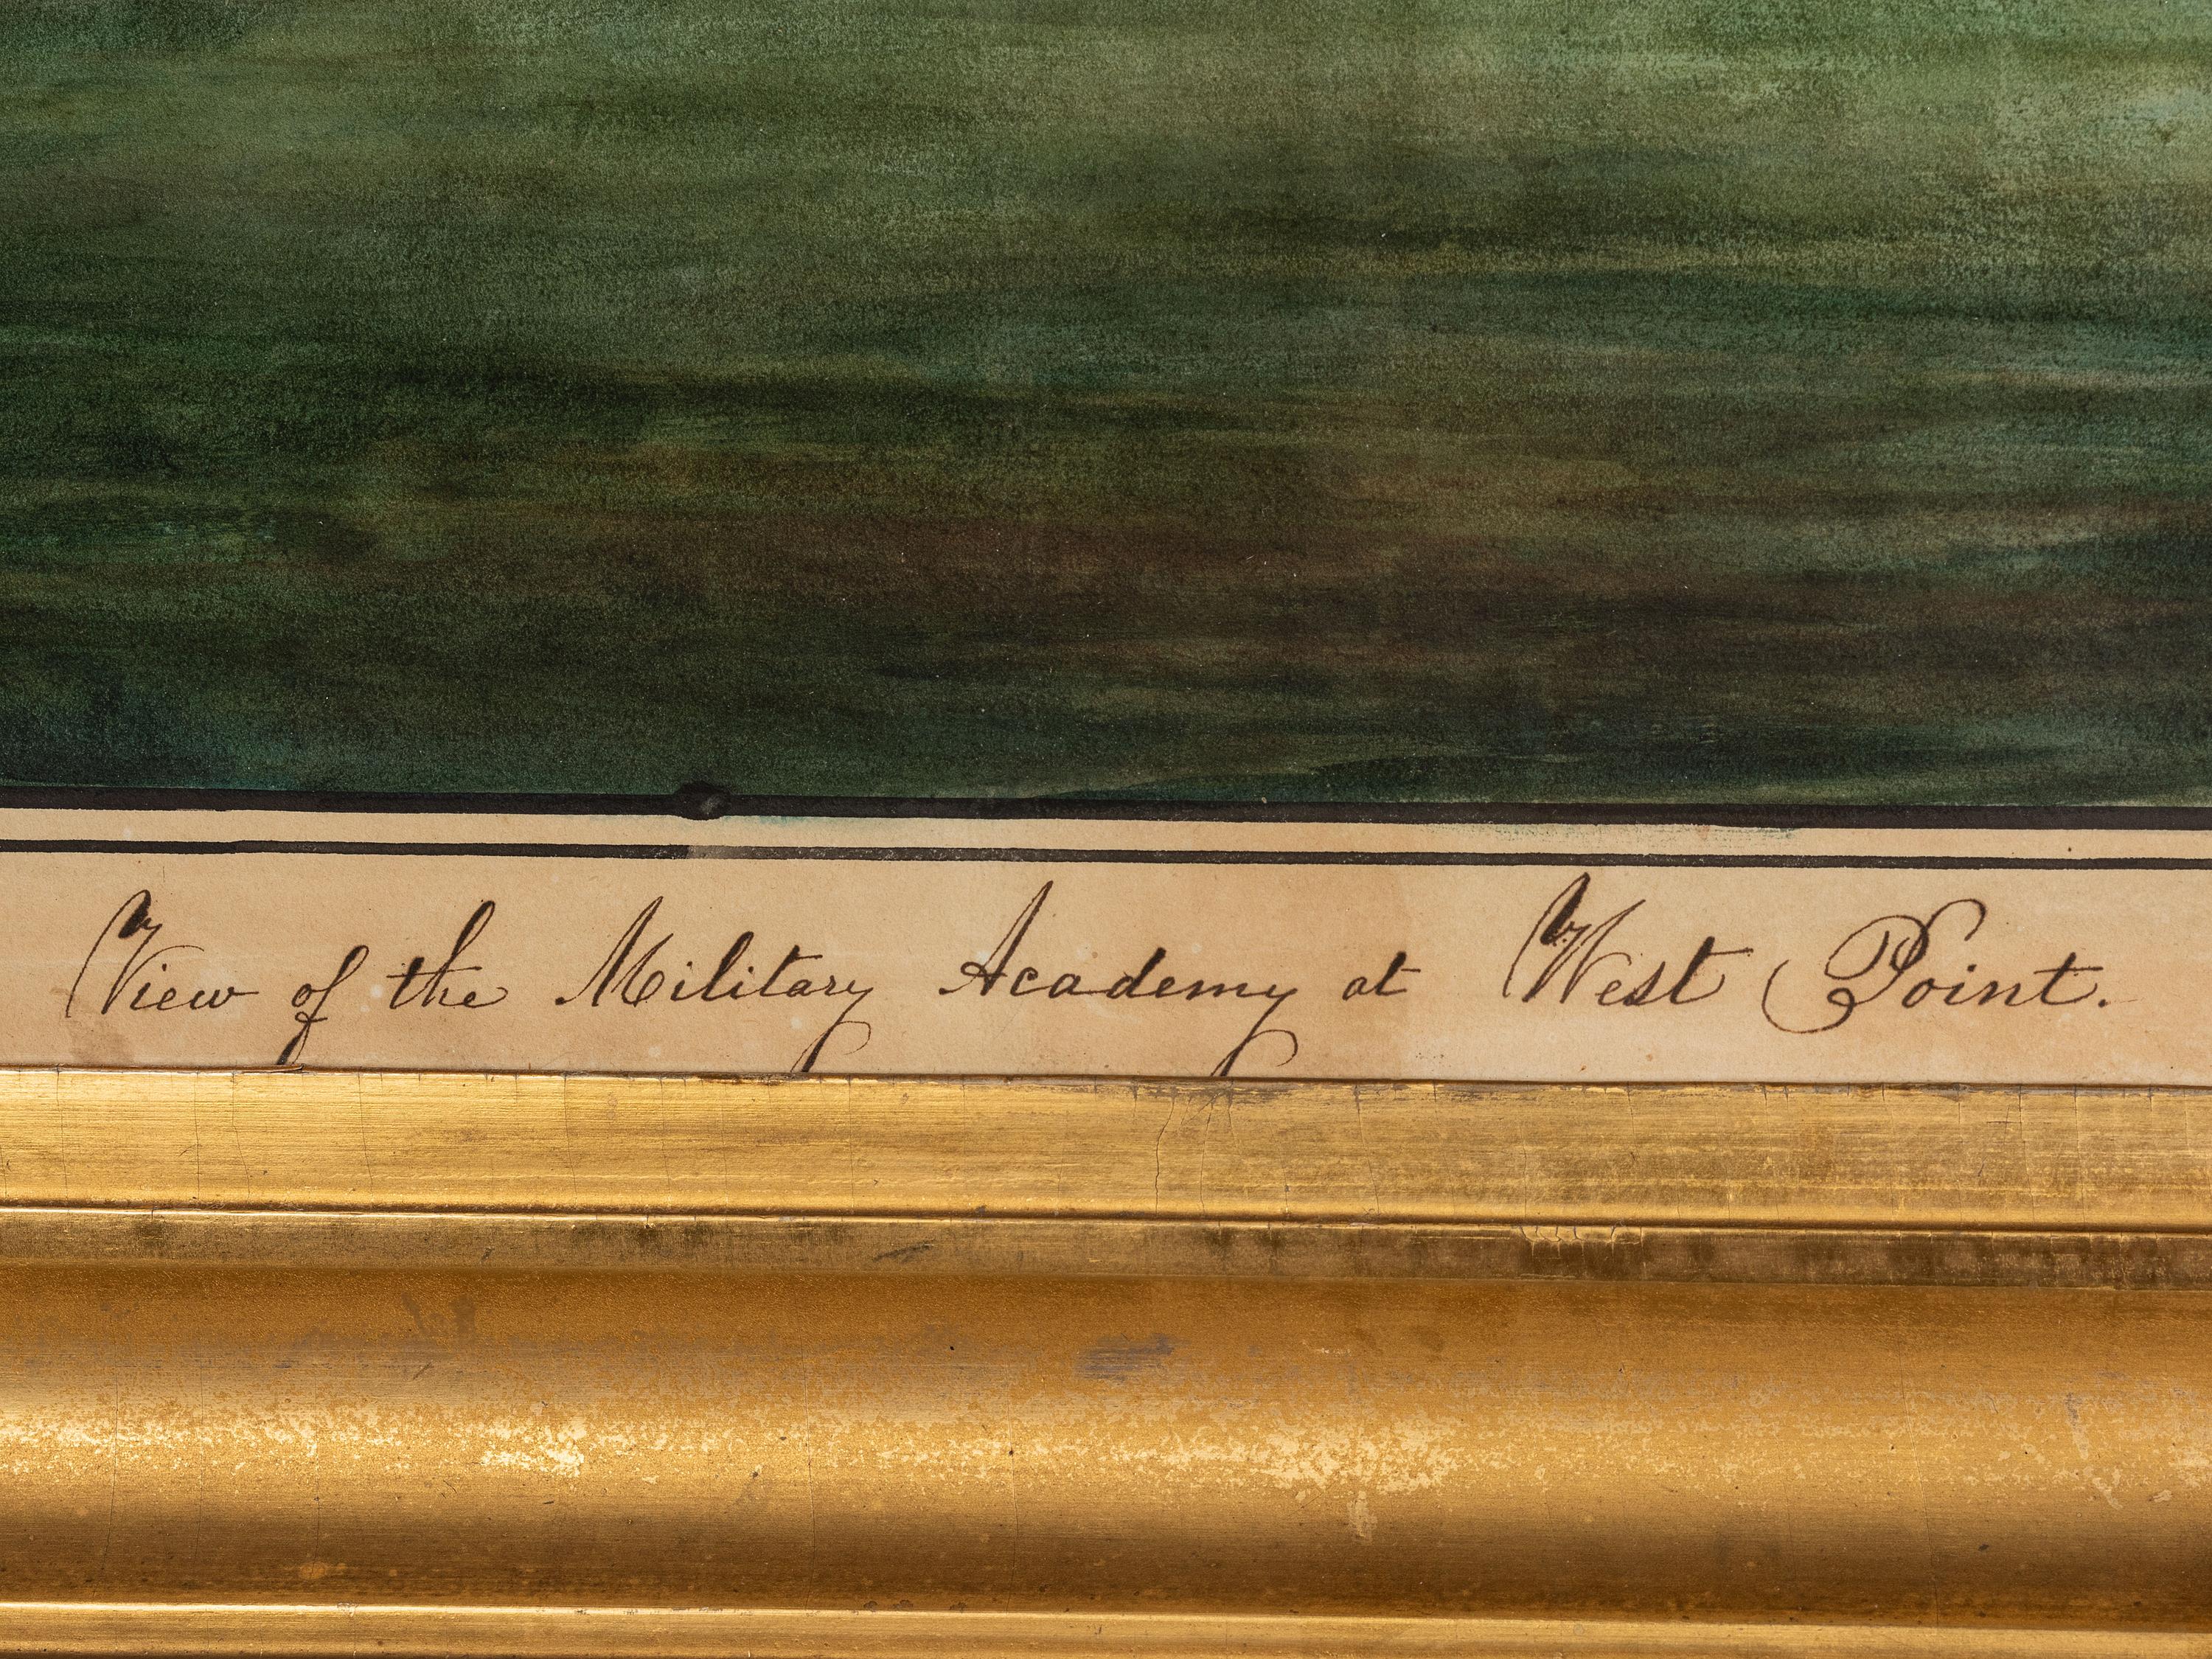 View of the Military Academy at West Point.